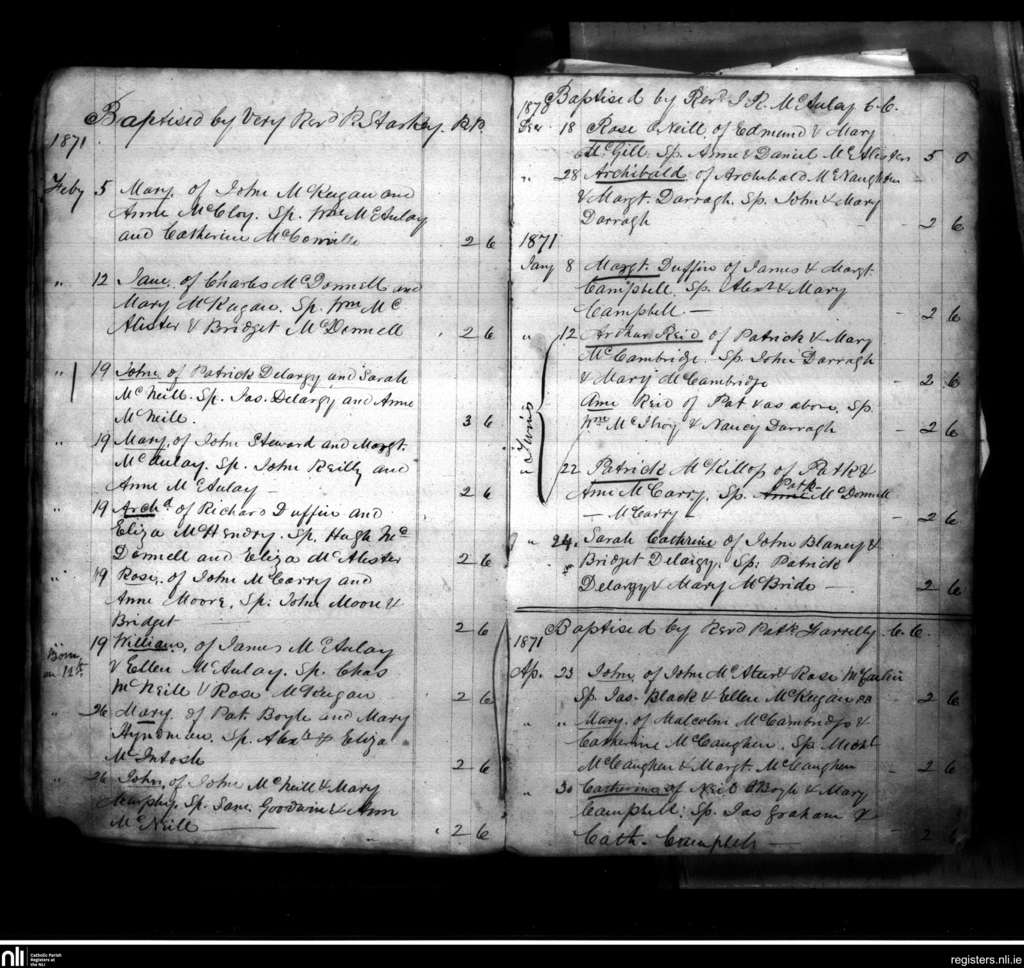 Baptised by Very Revd P. Starkey. P.P.
1871
Feby 5 Mary, of John McKeegan and
Anne McCloy. Sp. Wm McAulay
and Catherine McConville 2 6
" 12 Jane, of Charles McDonnell and
Mary McKeegan. Sp. Wm Mc
Alister & Bridget McDonnell 2 6
" 19 John, of Patrick Delargy and Sarah
McNeill. Sp. Jas. Delargy and Anne
McNeill. 3 6
" 19 Mary, of John Steward and Margt.
McAulay. Sp. John Reilly and
Anne McAulay — 2 6
" 19 Archd. of Richard Duffin and
Eliza McHendry. Sp. Hugh Mc
Donnell and Eliza McAlister 2 6
" 19 Rose, of John McCarry and
Anne Moore, Sp. John Moore &
Bridget — 2 6
Born on 12th. 19 William, of James McAulay
& Ellen McAulay. Sp. Chas
McNeill & Rose McKeegan 2 6
" 26 Mary, of Pat. Boyle and Mary
Hyndman. Sp. Alexr & Eliza
McIntosh 2 6
" 26 John, of John McNeill & Mary
Murphy. Sp. Goodwin & Ann
McNeill — 2 6
1870 Baptised by Revd J. R. McAulay C.C.
Dec 18 Rose O'Neill, of Edmund & Mary
McGill. Sp. Anne & Daniel McAlister 5 0
" 28 Archibald, of Archibald McNaughten
& Margt. Darragh. Sp. John & Mary
Darragh 2 6
1871
Jany 8 Margt. Duffin of James & Margt.
Campbell. Sp. & Mary
Campbell — 2 6
" 12 Arthur Reid of Patrick & Mary
McCambridge. Sp. John Darragh
& Mary McCambridge 2 6
twins
Ann Reid of Pat & as above. Sp.
Wm McIlroy & Nancy Darragh 2 6
22 Patrick McKillop of Patk &
Ann McCarry. Sp. Anne Patk McDonnell
— McCarry — 2 6
" 24. Sarah Cathrine of John Blaney &
Bridget Delargy. Sp: Patrick
Delargy & Mary McBride 2 6
1871 Baptised by Revd Patk Farrelly. C.C.
Ap. 23 John, of John McAteer & Rose
Sp. Jas. Black & Ellen McKeegan 2 6
" " Mary, of Malcolm McCambridge &
Catherine McCaughen. Sp. Michl
McCaughen & Margt. McCaughen 2 6
" 30 Catherine of Neil O'Boyle & Mary
Campbell: Sp. Jas Graham &
Cath. Campbell — 2 6
nli
Catholic Parish
Registers at
the NLI
registers.nli.ie